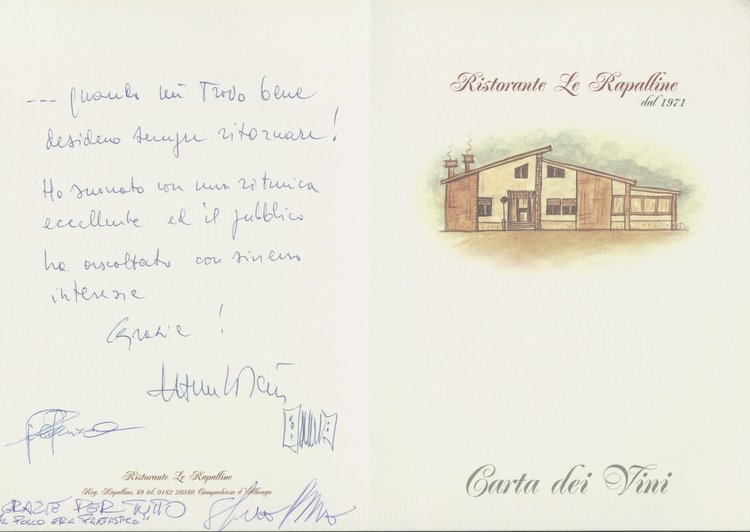 --- quando mi trovo bene
desidero sempre ritornare!
Ho suonato con una ritmica
eccellente ed il pubblico
ha ascoltato con sincero
interesse
Grazie!
Ristorante Le Rapalline
Reg. Rapalline, 49 tel. 0182 20340 Campochiesa d'Albenga
GRAZIE PER TUTTO
"IL POLLO ERA FANTASTICO"
Ristorante Le Rapalline
dal 1971
Carta dei Vini